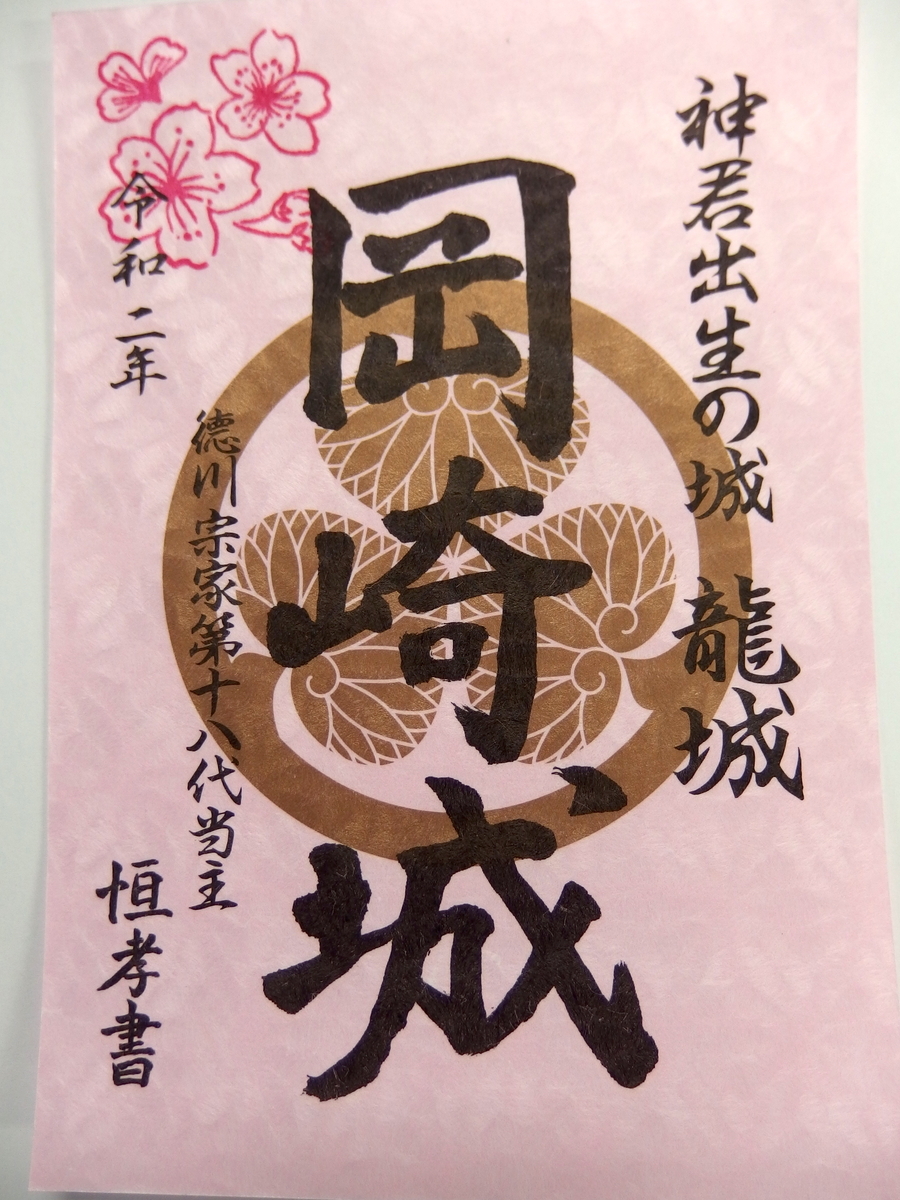 神君出生の城 龍城
岡崎城
徳川宗家第十八代当主
令和二年
恒孝書